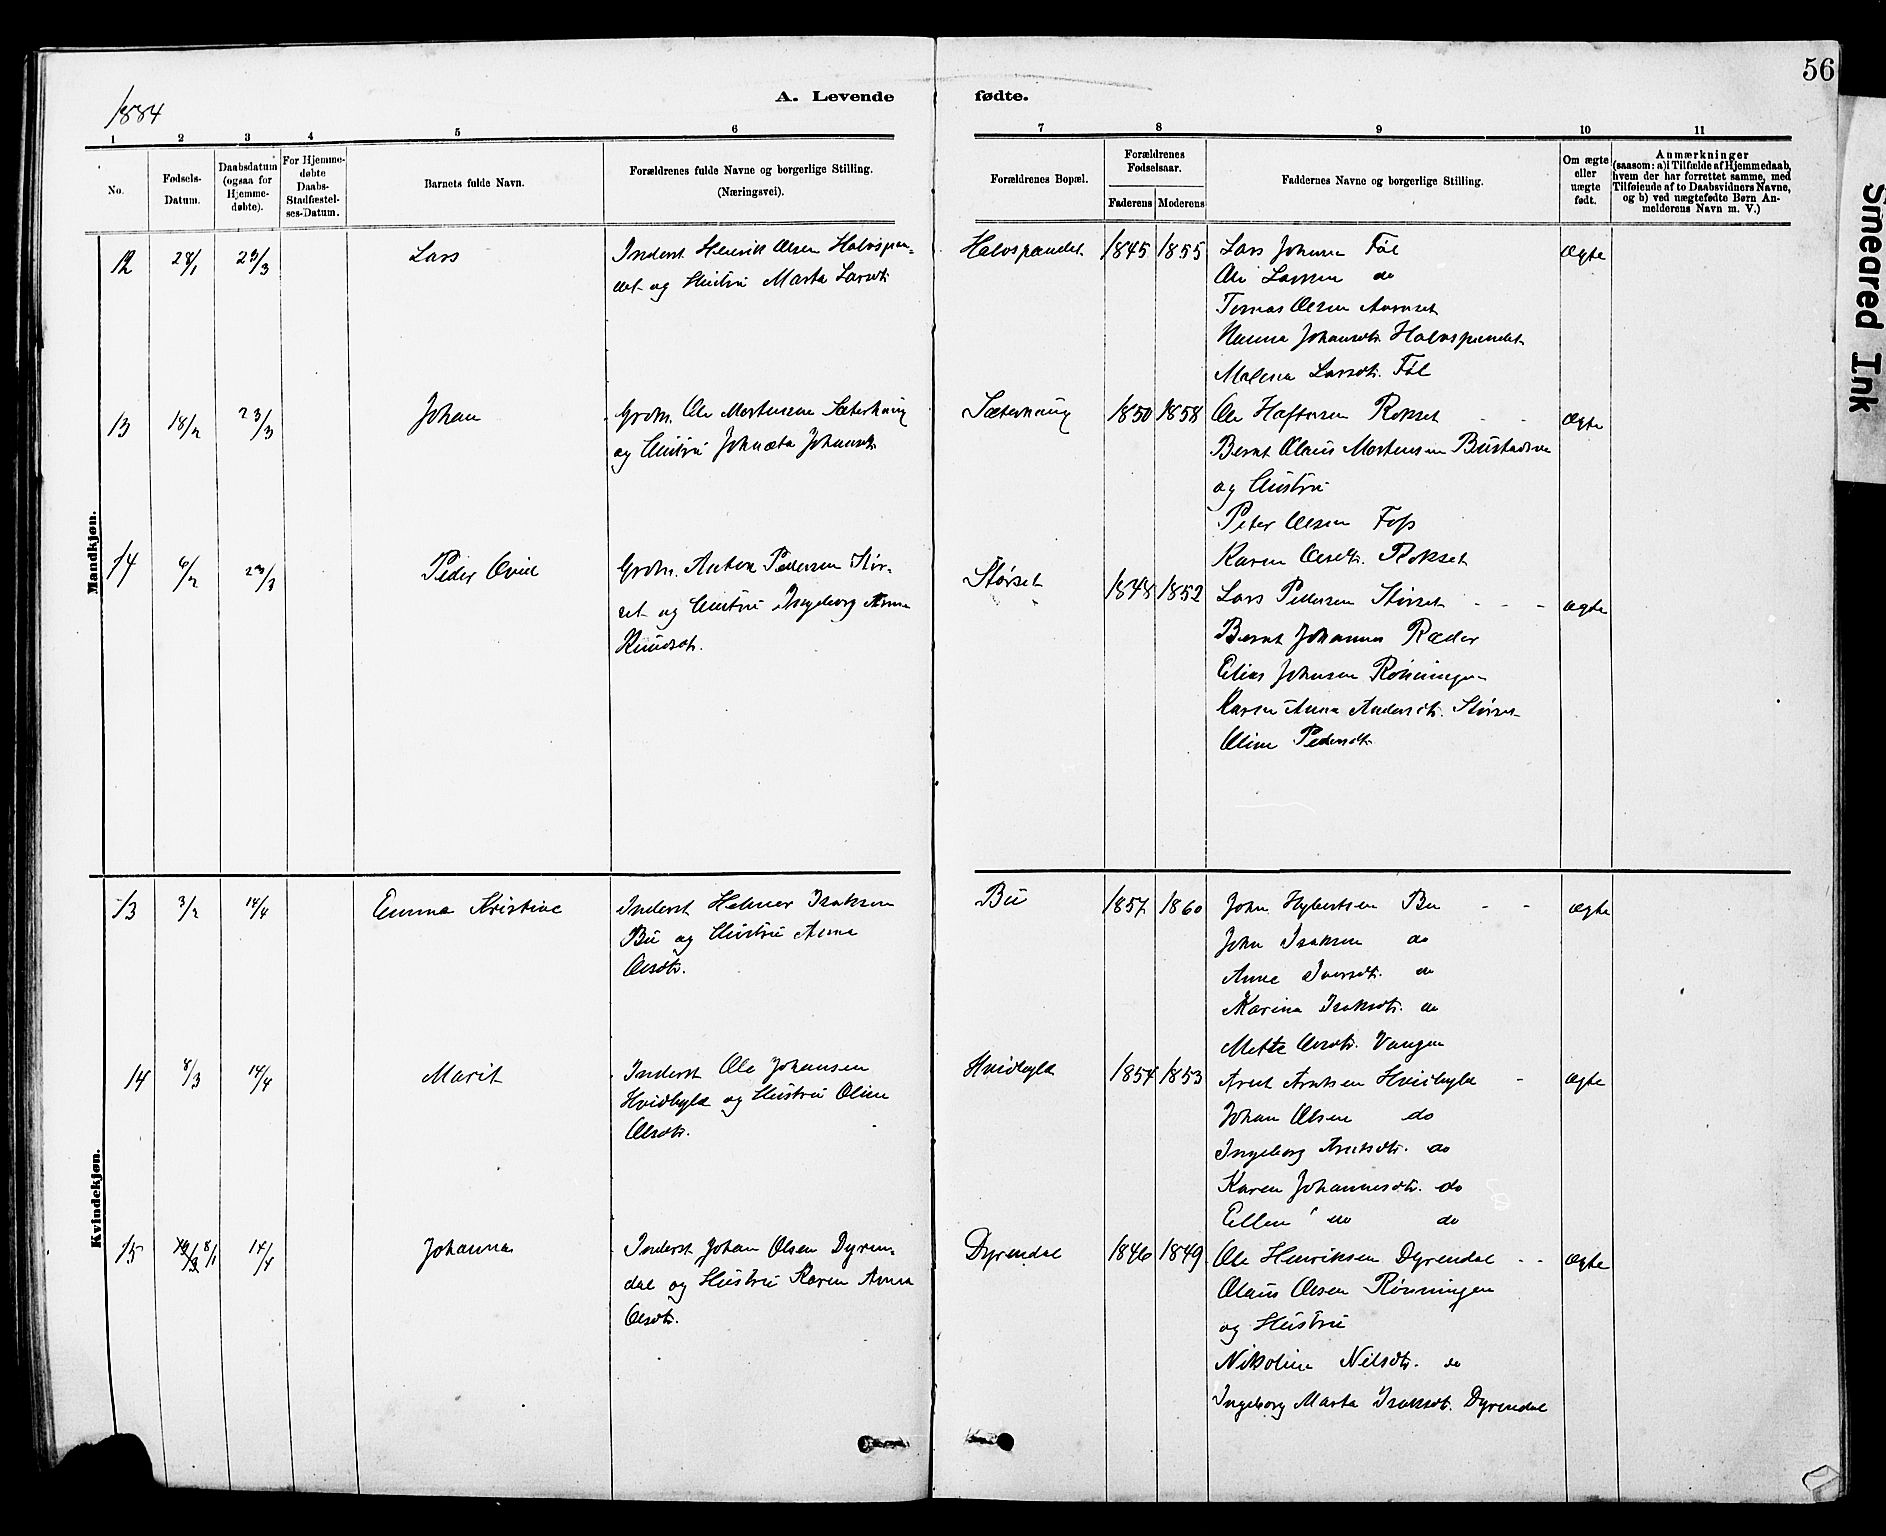 56
1884
A. Levende fødte.
1 2 3 4 5 6 7 8 9 10 11
No.
Fødsels-Datum.
Daabsdatum (ogsaa for Hjemme-døbte).
For Hjemme-døbte Daabs-Stadfæstel-ses-Datum.
Barnets fulde Navn.
Forældrenes fulde Navne og borgerlige Stilling. (Næringsvei).
Forældrenes Bopæl.
Forældrenes Fødselsaar.
Faderens Moderens
Faddernes Navne og borgerlige Stilling.
Om ægte eller uægte født.
Anmærkninger
(saasom: a) i Tilfælde af Hjemmedaab,
hvem der har forrettet samme, med
Tilføiende af to Daabsvidners Navne,
og b) ved uægtefødte Børn An-
melderens Navn m. V.)
Mandkjøn.
12 28/1 23/3 Lars
Inderst Henrik Olsen Halvspan-
det og Hustru Marta Larsdt.
Halvspandet 1845 1855
Lars Johnsen Føl
Ole Larsen do
Tomas Olsen
Johansdt. Halvspandet
Malena Larsdt. Føl
Ægte
13 18/2 23/3 Johan
Grdbr. Ole Mortensen Sæterhaug
og Hustru Johansdt.
Sæterhaug 1850 1858
Ole Haftorsen Rokset
Bernt Olaus Mortensen
og Hustru
Peter Olsen Foss
Karen Olsdt. Rokset
Ægte
14 6/2 23/3 Peder
Grdbr. Anton Pedersen Stør-
set og Hustru Ingeborg Anna
Knudsdt.
Størset 1848 1852
Lars Pedersen Størset
Bernt Johannes Ræder
Elias Johnsen Rønningen
Karen Anna Andersdt. Størset
Oline Pedersdt.
Ægte
Kvindekjøn.
13 3/2 14/4 Emma Kristine
Inderst Helmer Isaksen
Bu og Hustru Anna
Olsdt.
Bu 1857 1860
John Hybertsen Bu
John Isaksen do
Anne Iversdt. do
Karina Isaksdt. do
Mette Olsdt. Vangen
Ægte
14 8/3 14/4 Marit
Inderst Ole Johansen
Hvidbyld og Hustru Oline
Olsdt.
Hvidbyld 1854 1853
Arntsen Hvidbyld
Johan Olsen do
Ingeborg Arntsdt. do
Karen Johannesdt. do
Ellen do do
Ægte
15 8/1 14/4 Johanna
Inderst Johan Olsen Dyren-
dal og Hustru Karen Anna
Olsdt.
Dyrendal 1846 1849
Ole Henriksen Dyrendal
Olaus Olsen Rønningen
og Hustru
Nikoline Nilsdt. do
Ingeborg Marta Isaksdt. Dyrendal
Ægte
Smeared Ink